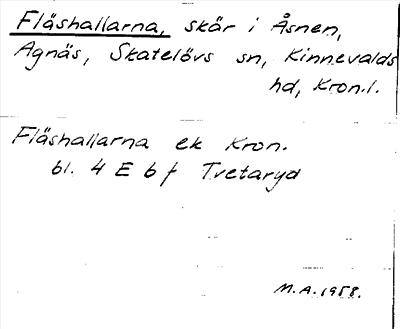 Fläshallarna, skär i Åsnen,
Agnäs, Skatelövs sn, Kinnevalds
hd, Kron.l.
Fläshallarna ek Kron.
bl. 4 E b f Tvetaryd
M.A. 1958.